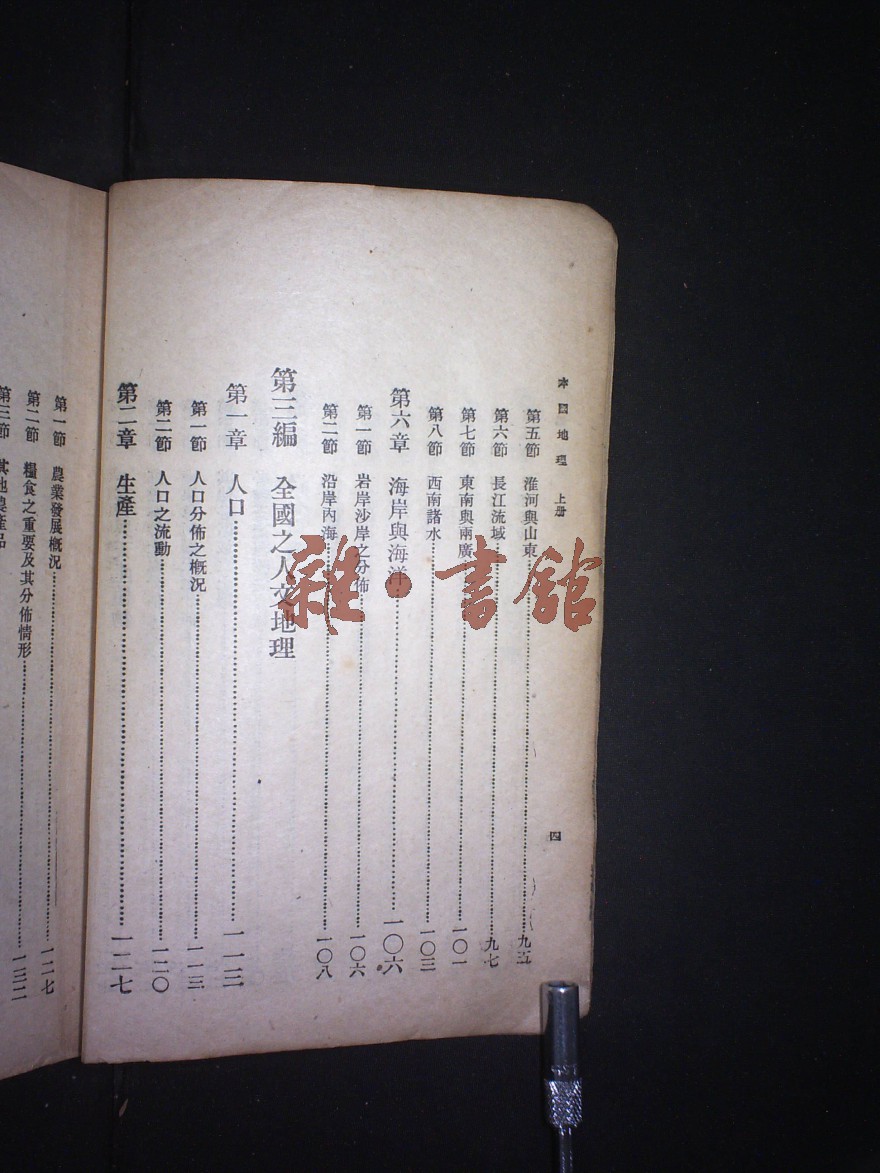 本國地理 上册
四
第五節 淮河與山東……九五
第六節 長江流域……九七
第七節 東南與兩廣……一〇一
第八節 西南諸水……一〇三
第六章 海岸與海洋……一〇六
第一節 岩岸沙岸之分佈……一〇六
第二節 沿岸內海……一〇八
第三編 全國之人文地理
第一章 人口……一一三
第一節 人口分佈之概況……一一三
第二節 人口之流動……一二〇
第二章 生產……一二七
第一節 農業發展概況……一二七
第二節 糧食之重要及其分佈情形……一三二
第三節 其他農產品
雜·書館